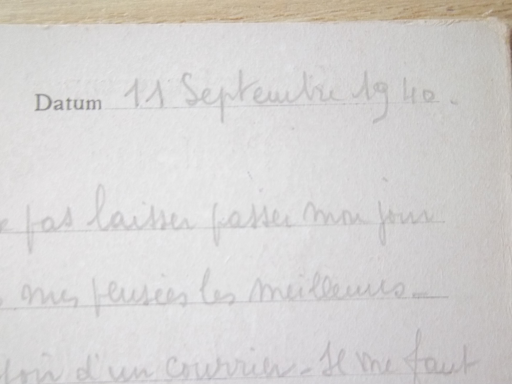 Datum 11 Septembre 1940.
pas laisser passer mon jour
mes pensées les meilleures
d'un courrier. Il me faut